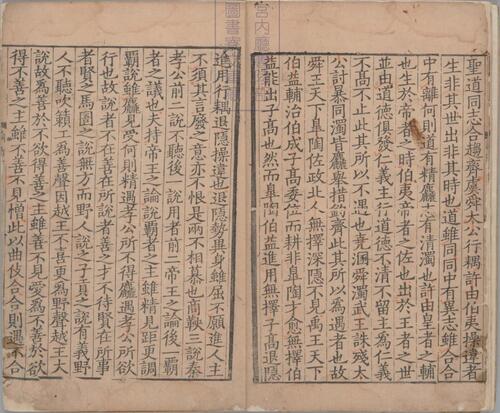 聖道同志合趨齊虞舜太公行耦許由伯夷操違者
生非其世出非其時也道雖同同中有異志雖合合
中有離何則道有精麤志有清濁也許由皇者之輔
也生於帝者之時伯夷帝者之佐也出於王者之世
並由道德俱發仁義主行道德不清不留主為仁義
不高不止此其所以不遇也堯溷舜濁武王誅殘太
公討暴同濁皆麤舉措鈞齊此其所以為遇者也故
舜王天下皐陶佐政北人無擇深隱不見禹王天下
伯益輔治伯成子高委位而耕非皐陶才愈無擇伯
益能出子高也然而皐陶伯益進用無擇子高退隱
進用行耦退隱操違也退隱勢異身雖屈不願進人主
不須其言廢之意亦不恨是兩不相慕也商鞅三說秦
孝公前二說不聽後一說用者前二帝王之論後一霸
者之議也夫持帝王之論說霸者之主雖精見距更調
霸說雖麤見受何則精遇孝公所不得麤遇孝公所欲
行也故說者不在善在所說者善之才不待賢在所事
者賢之馬圄之說無方而野人說之子貢之說有義野
人不聽吹籟工為善聲因越王不喜更為野聲越王大
說故為善於不欲得善之主雖善不見愛為不善於欲
得不善之主雖不善不見憎此以曲伎合合則遇不合
宮内廳
圖書寮